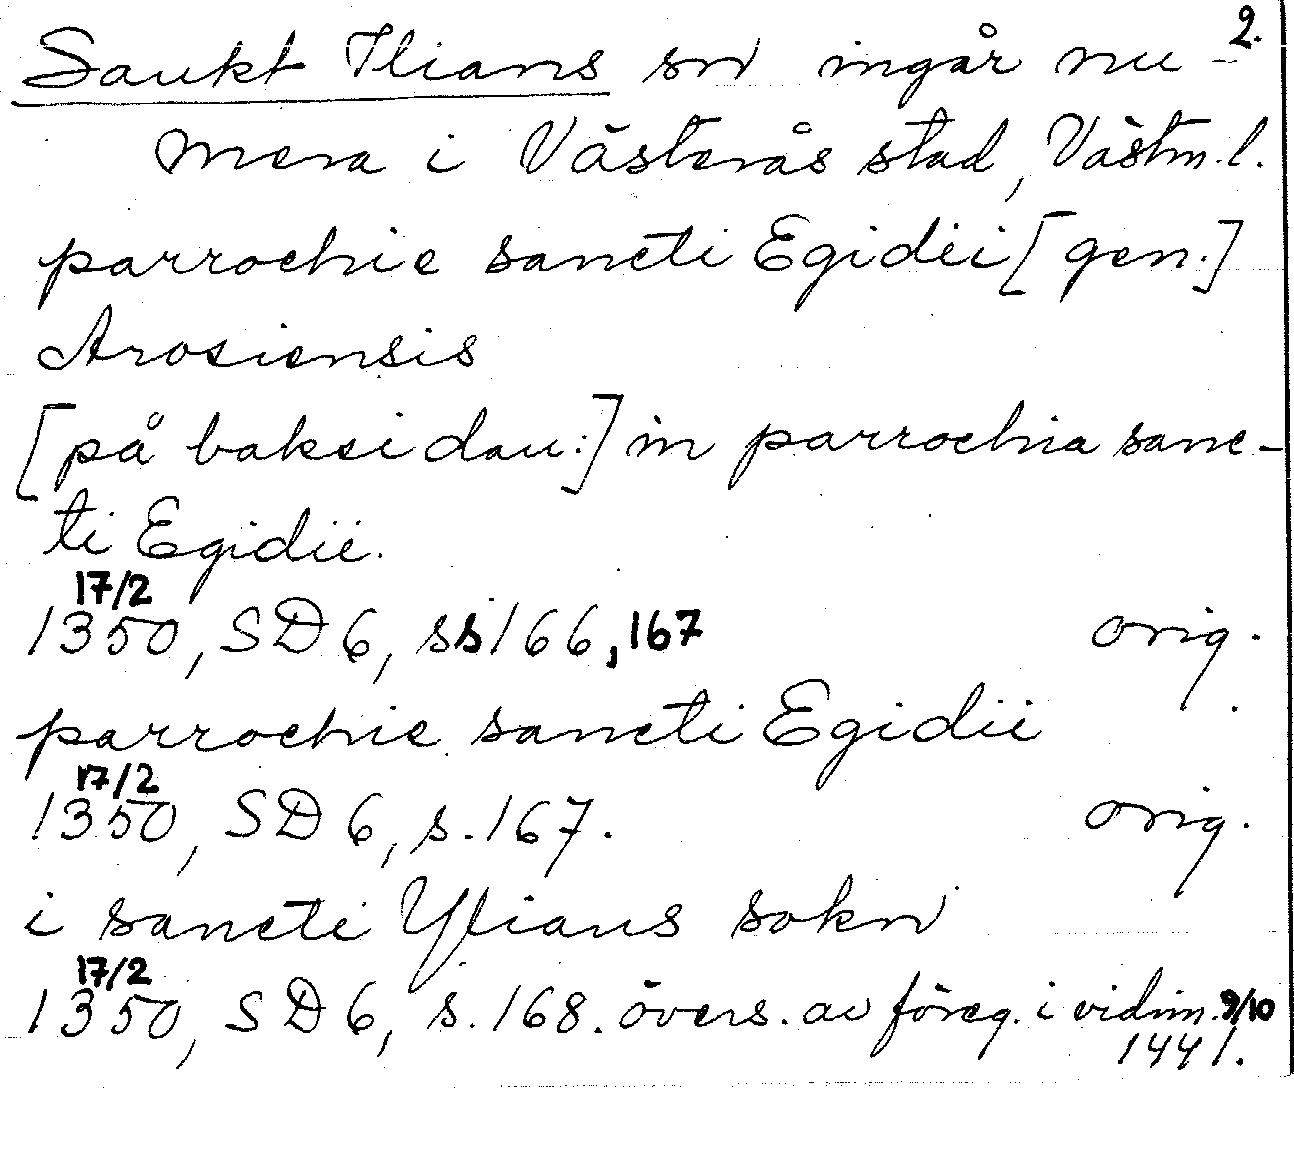 2.
Sankt Ilians sn ingår nu-
mera i Västerås stad, Västm. l.
parrochie sancti Egidii [gen.]
Arosiensis
[på baksidan:] in parrochia sanc-
ti Egidii.
17/2
1350, SD 6, ss 166, 167 orig.
parrochie sancti Egidii
17/2
1350, SD 6, s. 167. orig.
i sancti Ylians sokn
17/2
1350, SD 6, s. 168. övers. av föreg. i vidim. 9/10
1441.